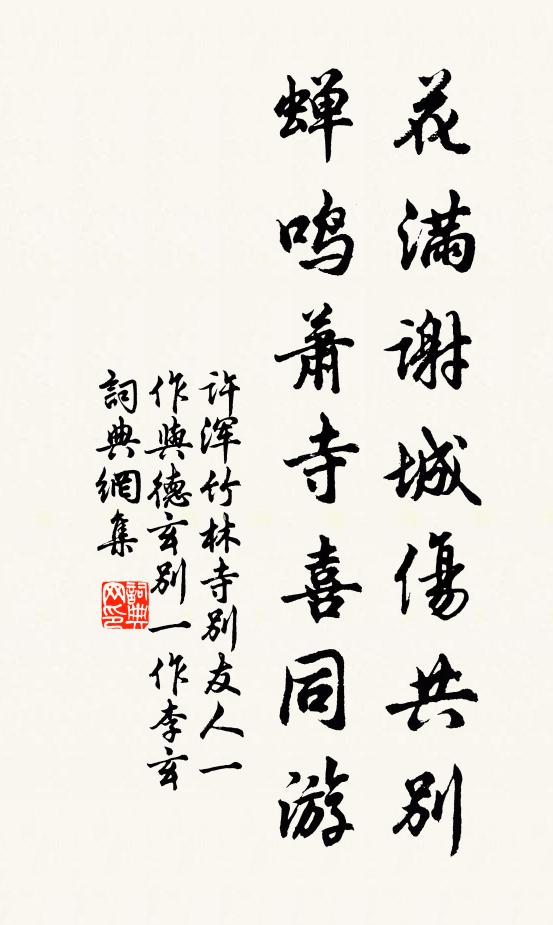 花满谢城傷共別
蝉鸣萧寺喜同游
许浑竹林寺别友人一
作與德玄别一作李玄
詞典網集
詞典
网印